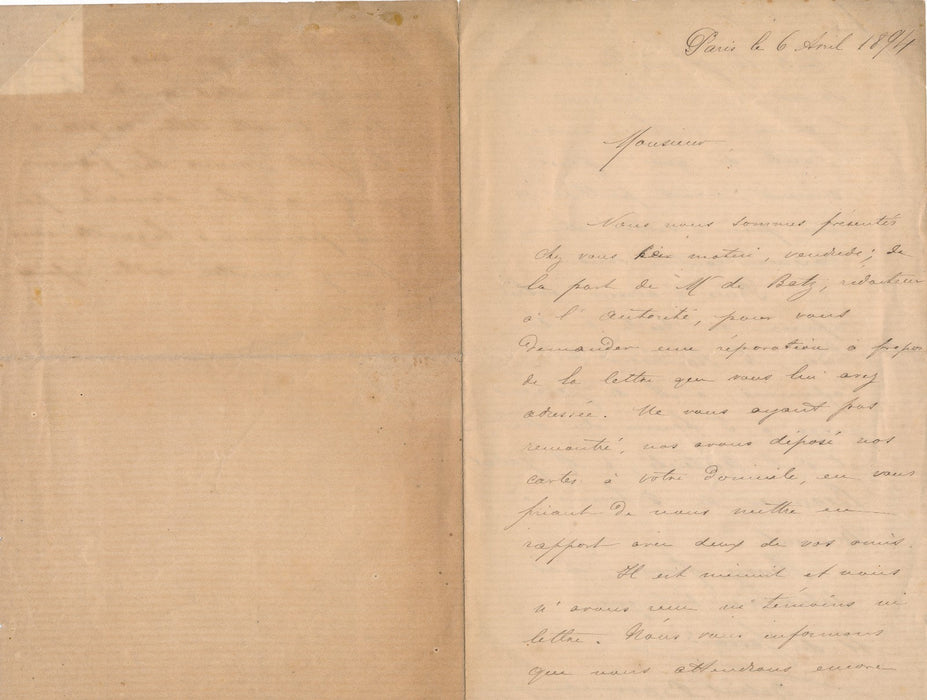 Paris le 6 Avril 1894
Monsieur,
Nous nous sommes présentés
chez vous hier matin, vendredi; de
la part de M de Batz, rédacteur
à l'Autorité, pour vous
demander une réparation à propos
de la lettre que vous lui avez
adressée. Ne vous ayant pas
rencontré, nos avons déposé nos
cartes à votre domicile, en vous
priant de nous mettre en
rapport avec deux de vos amis.
Il est minuit et nous
n'avons reçu ni témoins ni
lettre. Nous vous informons
que nous attendrons encore